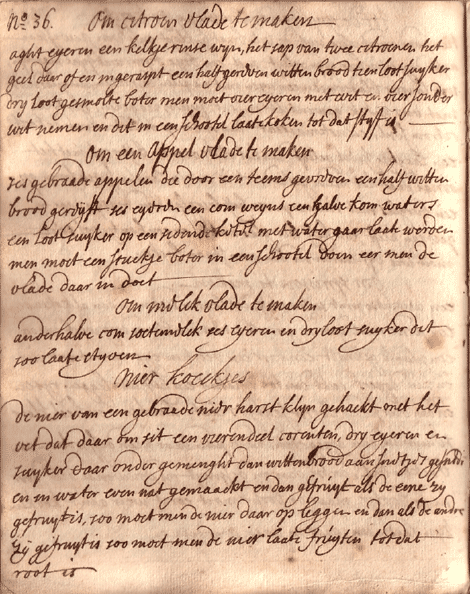 No 36. Om citroen vlade te maken
aght eyeren een kelkje rinse wyn, het sap van twee citroenen het
geel daar of en ingeraspt een half gewreven wittenbrood tien loot suyker
dry loot gesmolte boter men moet vier eyeren met wit en vier sonder
wit nemen en dit in een schootel laate koken tot dat styf is
Om een Appel vlade te maken
ses gebraade appelen die door een teems gevreven een half witten
brood geryft ses eyeren een com weyns een halve kom waters
een loot suyker op een siedende ketel met water gaar laate werden
men moet een stuckje boter in een schootel doen eer men de
vlade daar in doet
Om melck vlade te maken
anderhalve com soetemelck ses eyeren en dry loot suyker dit
soo laate styven
Nier koeckjes
de nier van een gebraade nier harst klyn gehackt met het
vet dat daar om sit een vierendeel corenten, dry eyeren en
suyker daar onder gemenght dan wittenbrood aan sneetjes
en in water even nat gemaackt en dan gefruyt als de eene zy
gefruyt is, soo moet men de nier daar op leggen en dan als de andre
zy gefruyt is soo moet men de nier laate fruyten tot dat
root is